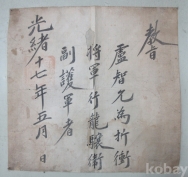 敎旨
盧智允為折衝
將軍行龍驤衛
副護軍者
光緒十七年五月 日
kobay